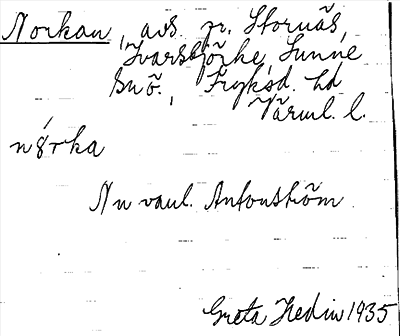 Norkan, avs. p. Stornäs,
Ivarsbjörke, Sunne
sn ö., Fryksd. hd
Värml. l.
nǫ́rka
Nu vanl. Antonström
Greta Hedin 1935